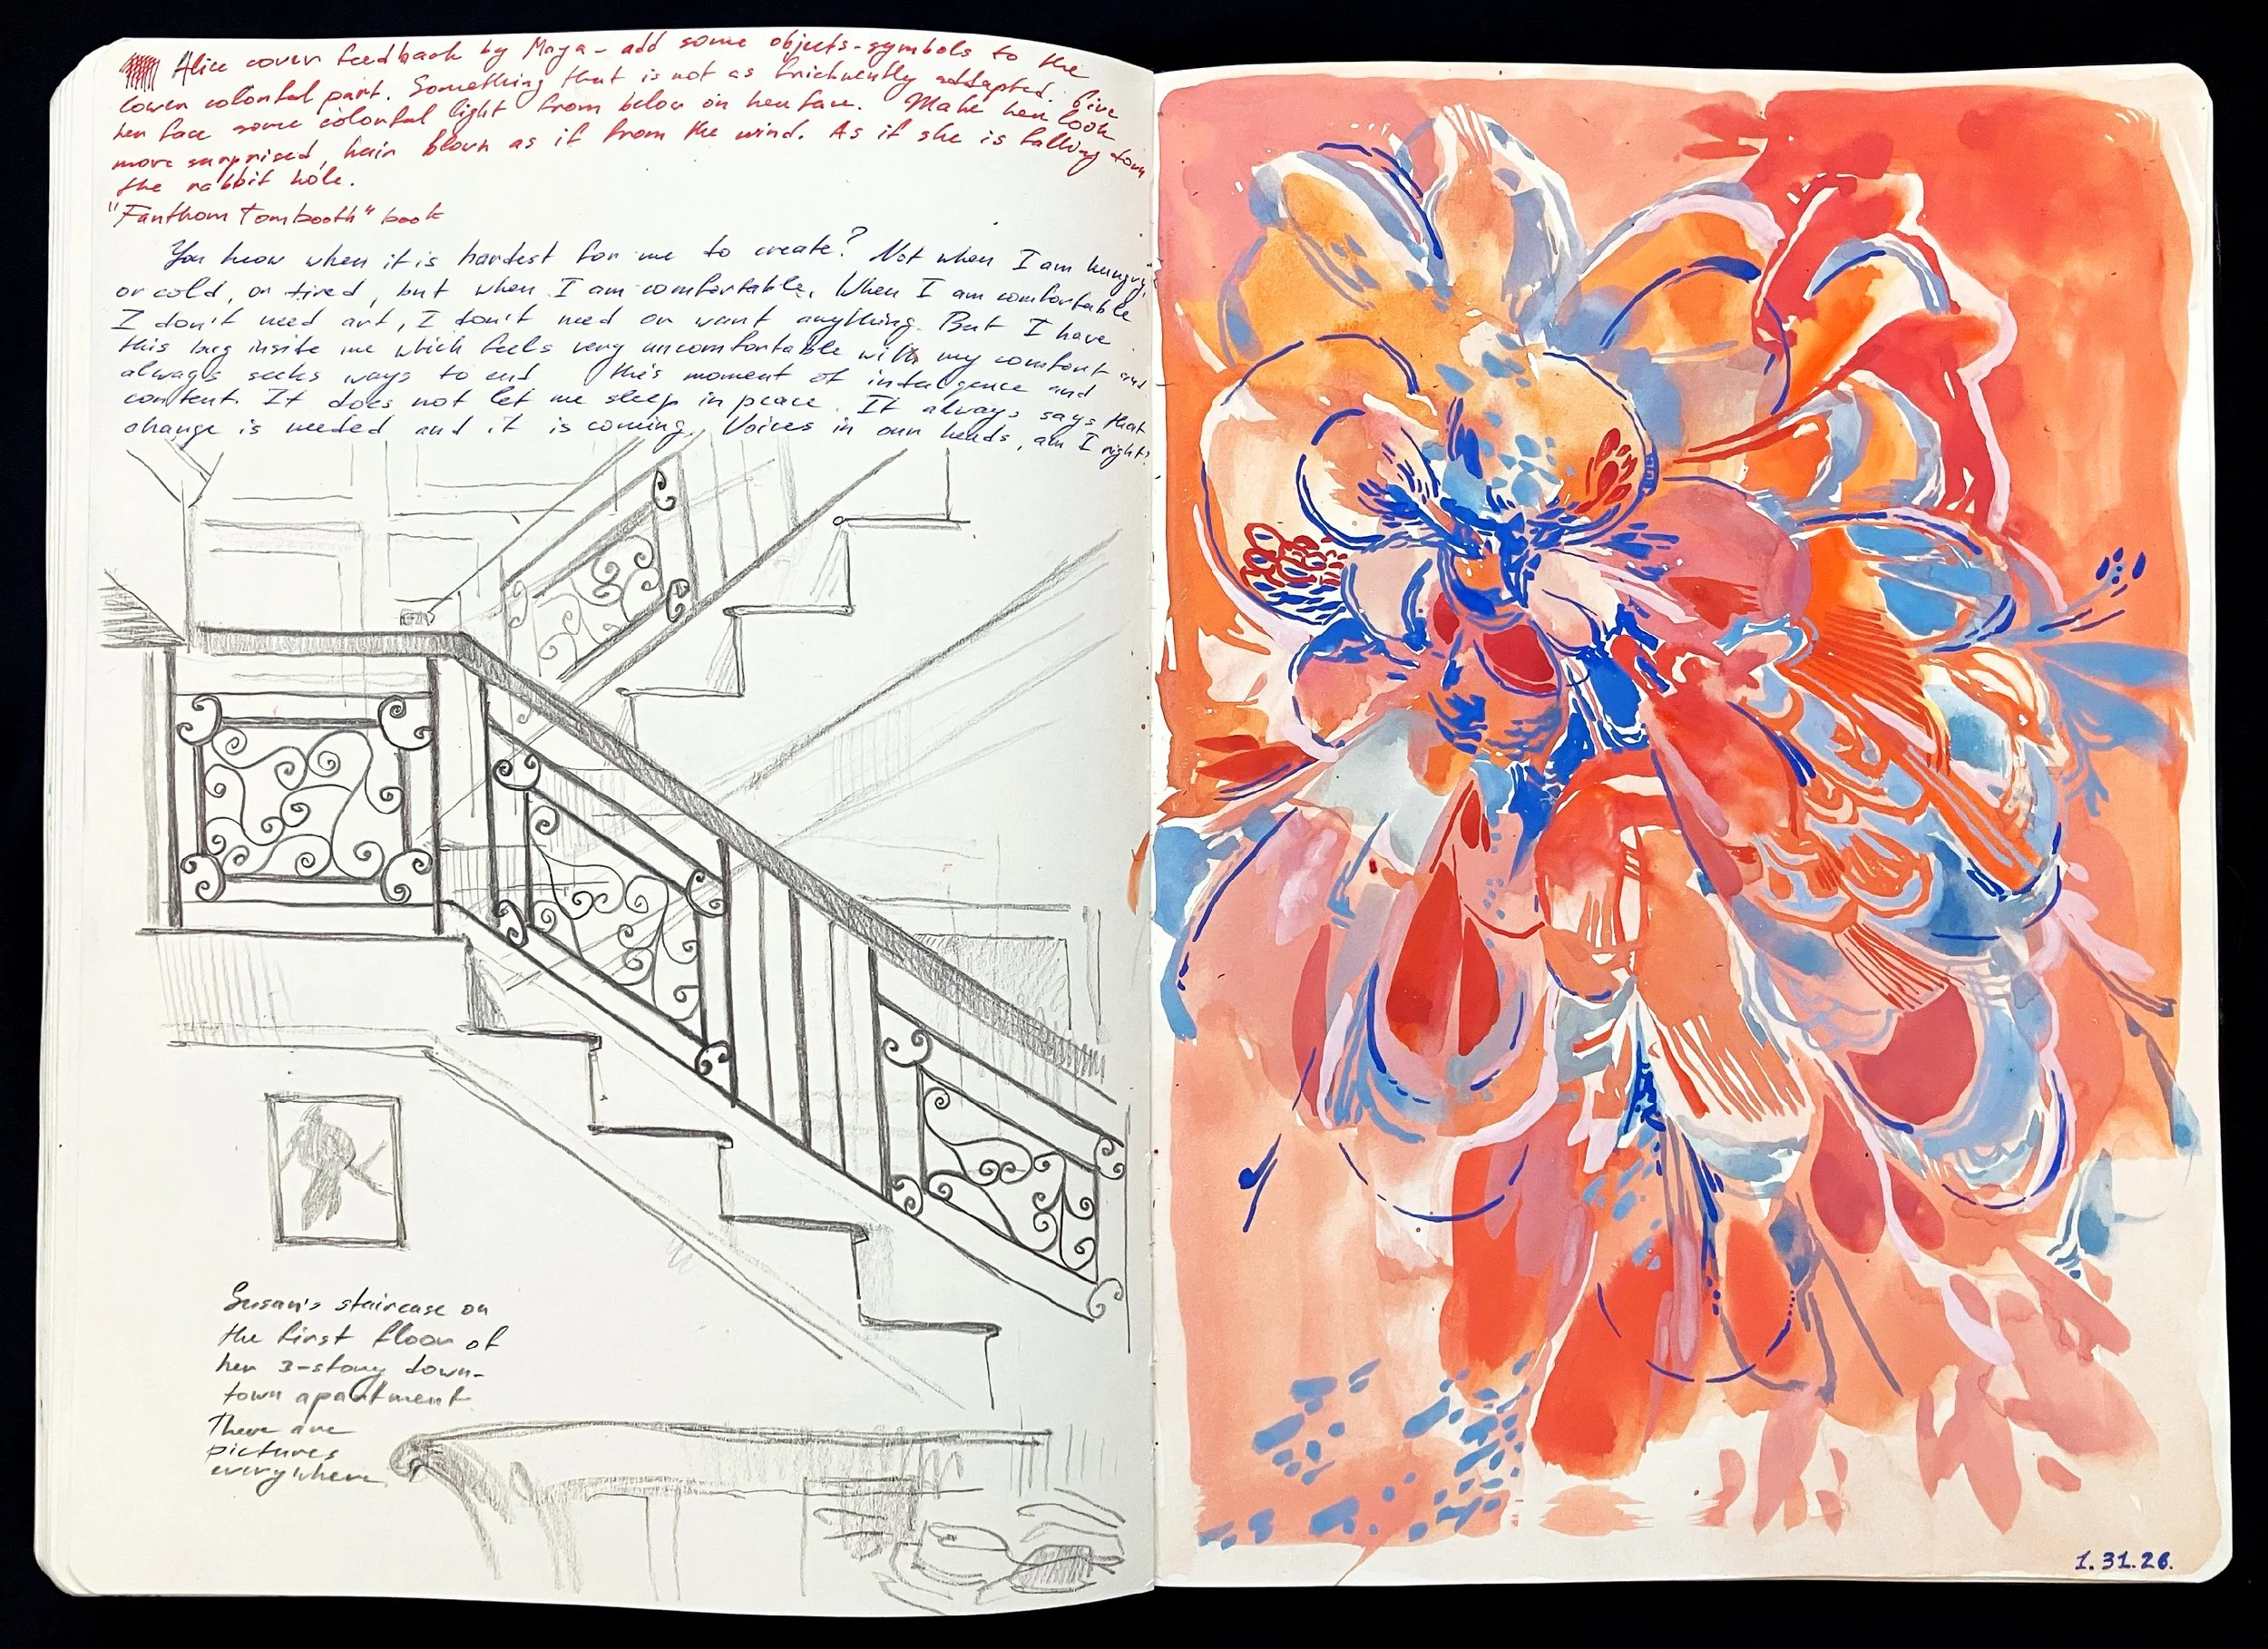 Alice cover feedback by Maya - add some objects-symbols to the
lower colorful part. Something that is not as frichuently addapted. Give
her face some colorful light from below on her face. Make her look
more surprised, hair blown as if from the wind. As if she is falling down
the rabbit hole.
"Fanthom Tombooth" book
You know when it is hardest for me to create? Not when I am hungry,
or cold, or tired, but when I am comfortable. When I am comfortable
I don't need art, I don't need or want anything. But I have
this bug inside me which feels very uncomfortable with my comfort and
always seeks ways to end this moment of indulgence and
content. It does not let me sleep in peace. It always says that
change is needed and it is coming. Voices in our heads, am I right?
Susan's staircase on
the first floor of
her 3-story down-
town apartment
There are
pictures
everywhere
1.31.26.